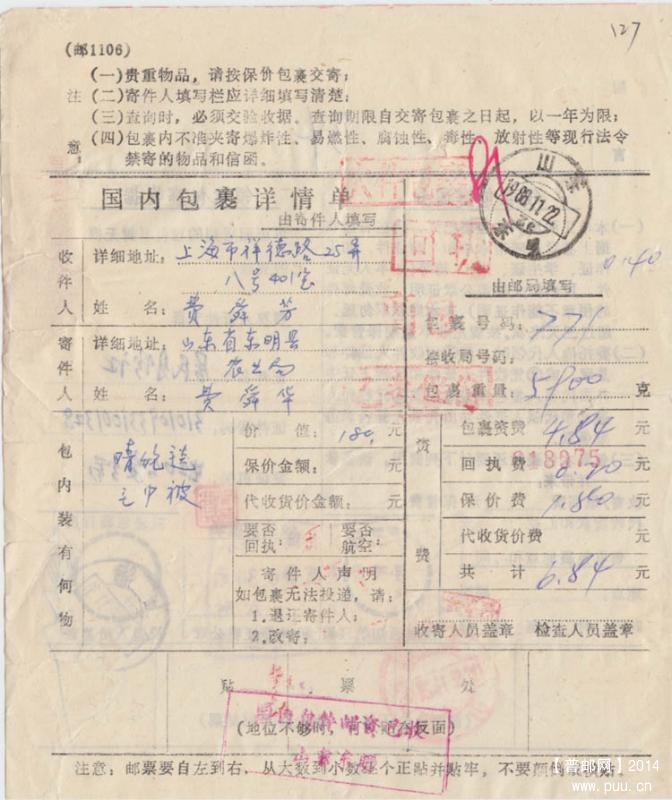 127
(邮1106)
(一)贵重物品，请按保价包裹交寄；
注 (二)寄件人填写栏应详细填写清楚；
(三)查询时，必须交验收据。查询期限自交寄包裹之日起，以一年为限；
意： (四)包裹内不准夹寄爆炸性、易燃性、腐蚀性、毒性、放射性等现行法令
禁寄的物品和信函。
国内包裹详情单
由寄件人填写
山东
1988.11.22
收件人 详细地址：上海市祥德路25弄
八号401室
姓名：费舜芳
0.40
由邮局填写
寄件人 详细地址：山东省东明县
农业局
姓名：费舜华
包裹号码：771
接收局号码：
包裹重量：5900克
包内装有何物
中被
价值：180元
保价金额：元
代收货价金额：元
要否回执：
要否航空：
寄件人声明
如包裹无法投递，请：
1.退还寄件人；
2.改寄：
资费
包裹资费 4.84元
回执费 0.20元
018975
保价费 1.80元
代收货价费 元
共计 6.84元
收寄人员盖章 检查人员盖章
贴票处
(地位不够时，可贴在反面)
山东东明
注意：邮票要自左到右，从大数到小数逐个正贴并贴牢，不要颠倒或折贴。
【普邮网】2014
www.puu.cn